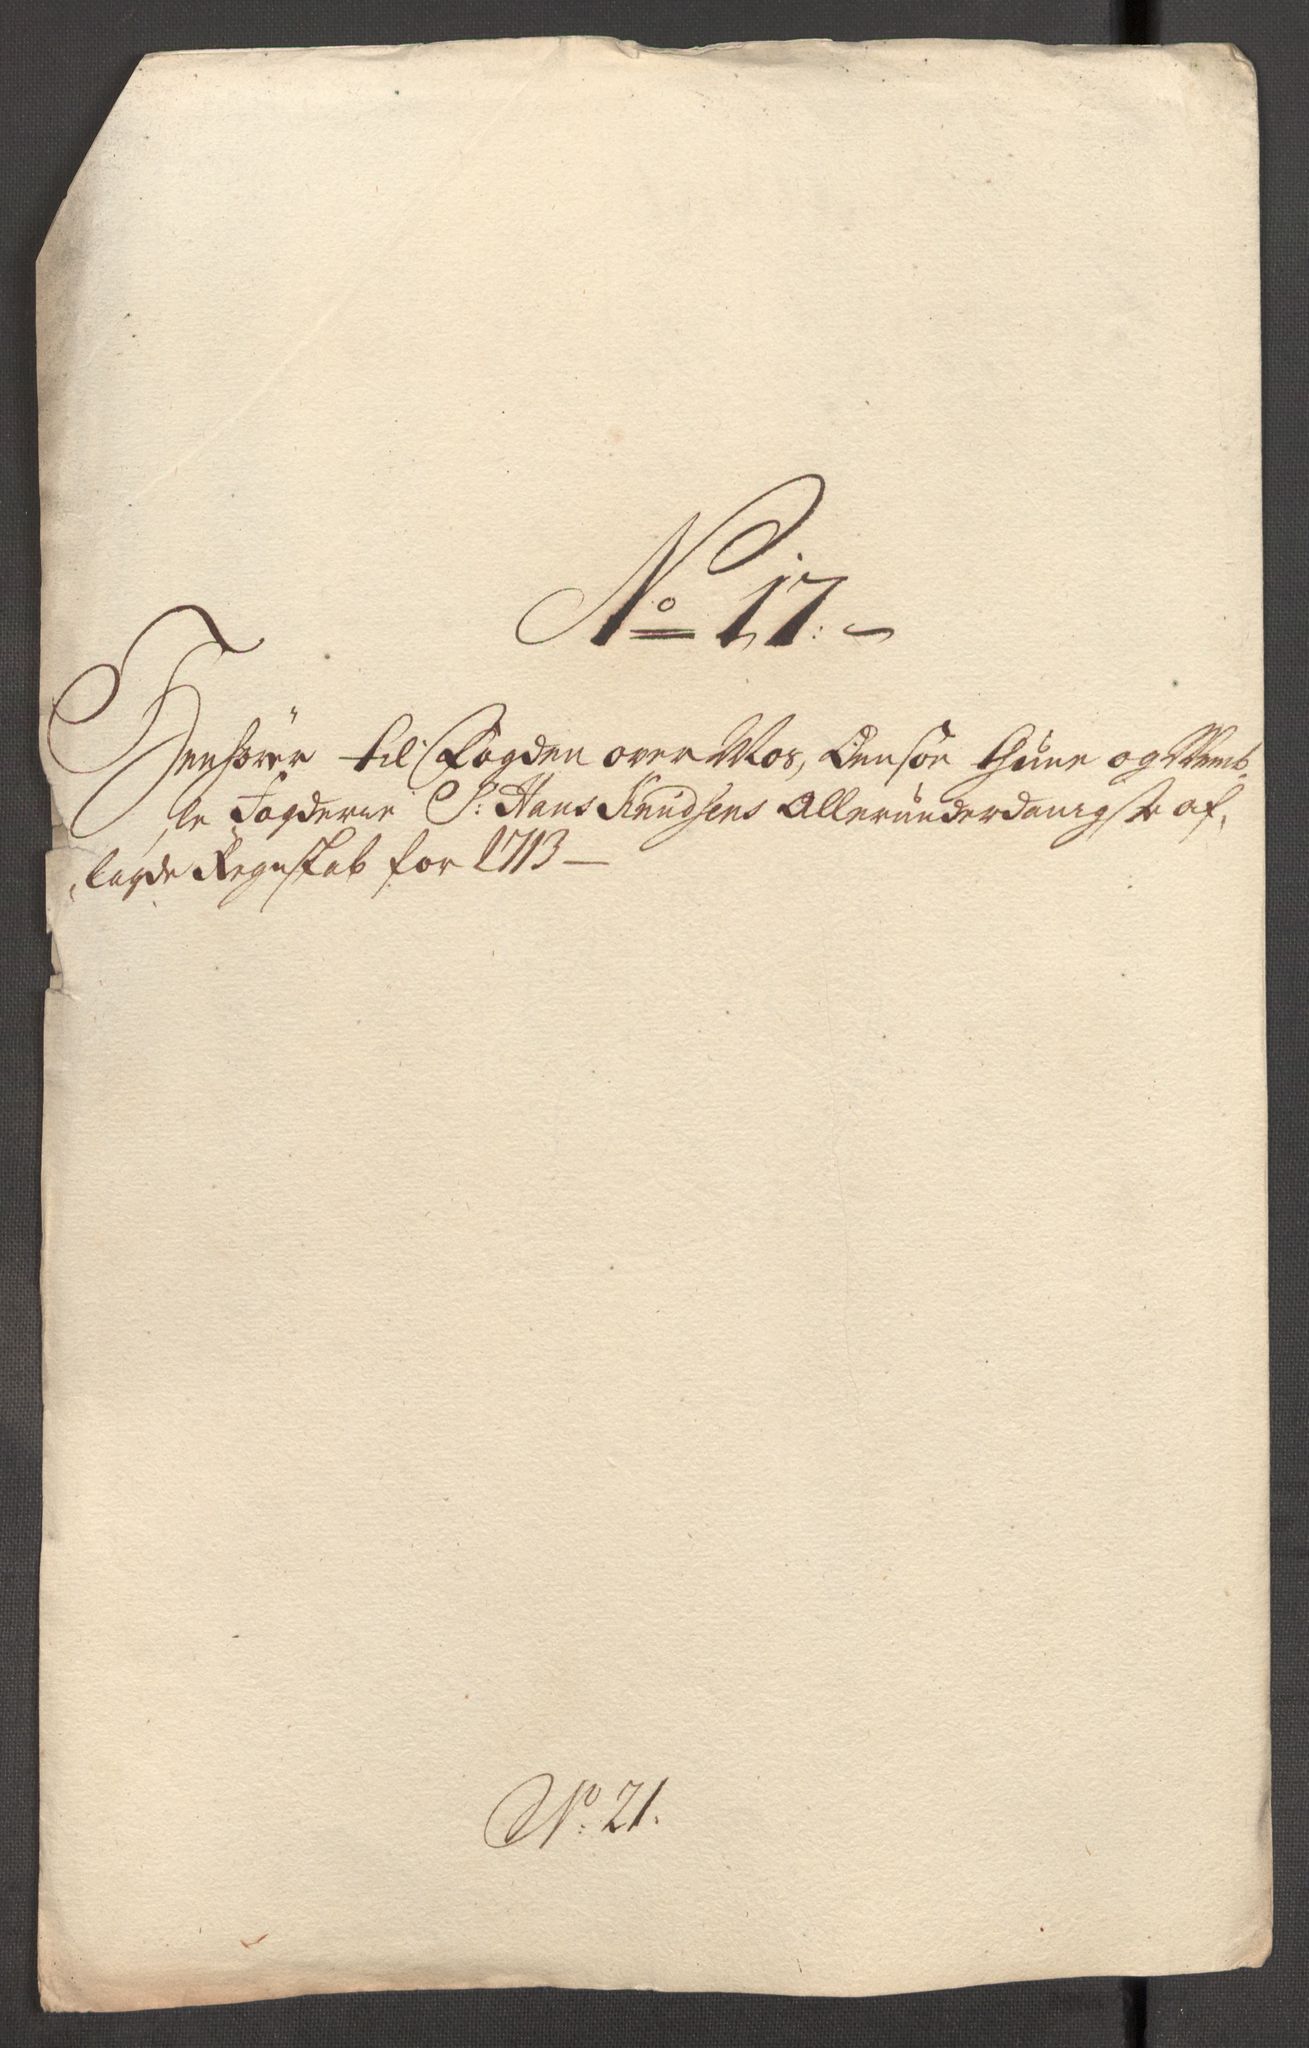 No 17.
Henhörer til Fogden over Mos, Onsöe Thune og Wemb-
le Fogderie Sr: Hans Knudsens Allerunderdanigste af-
lagde Regnskab for 1713
No: 21.